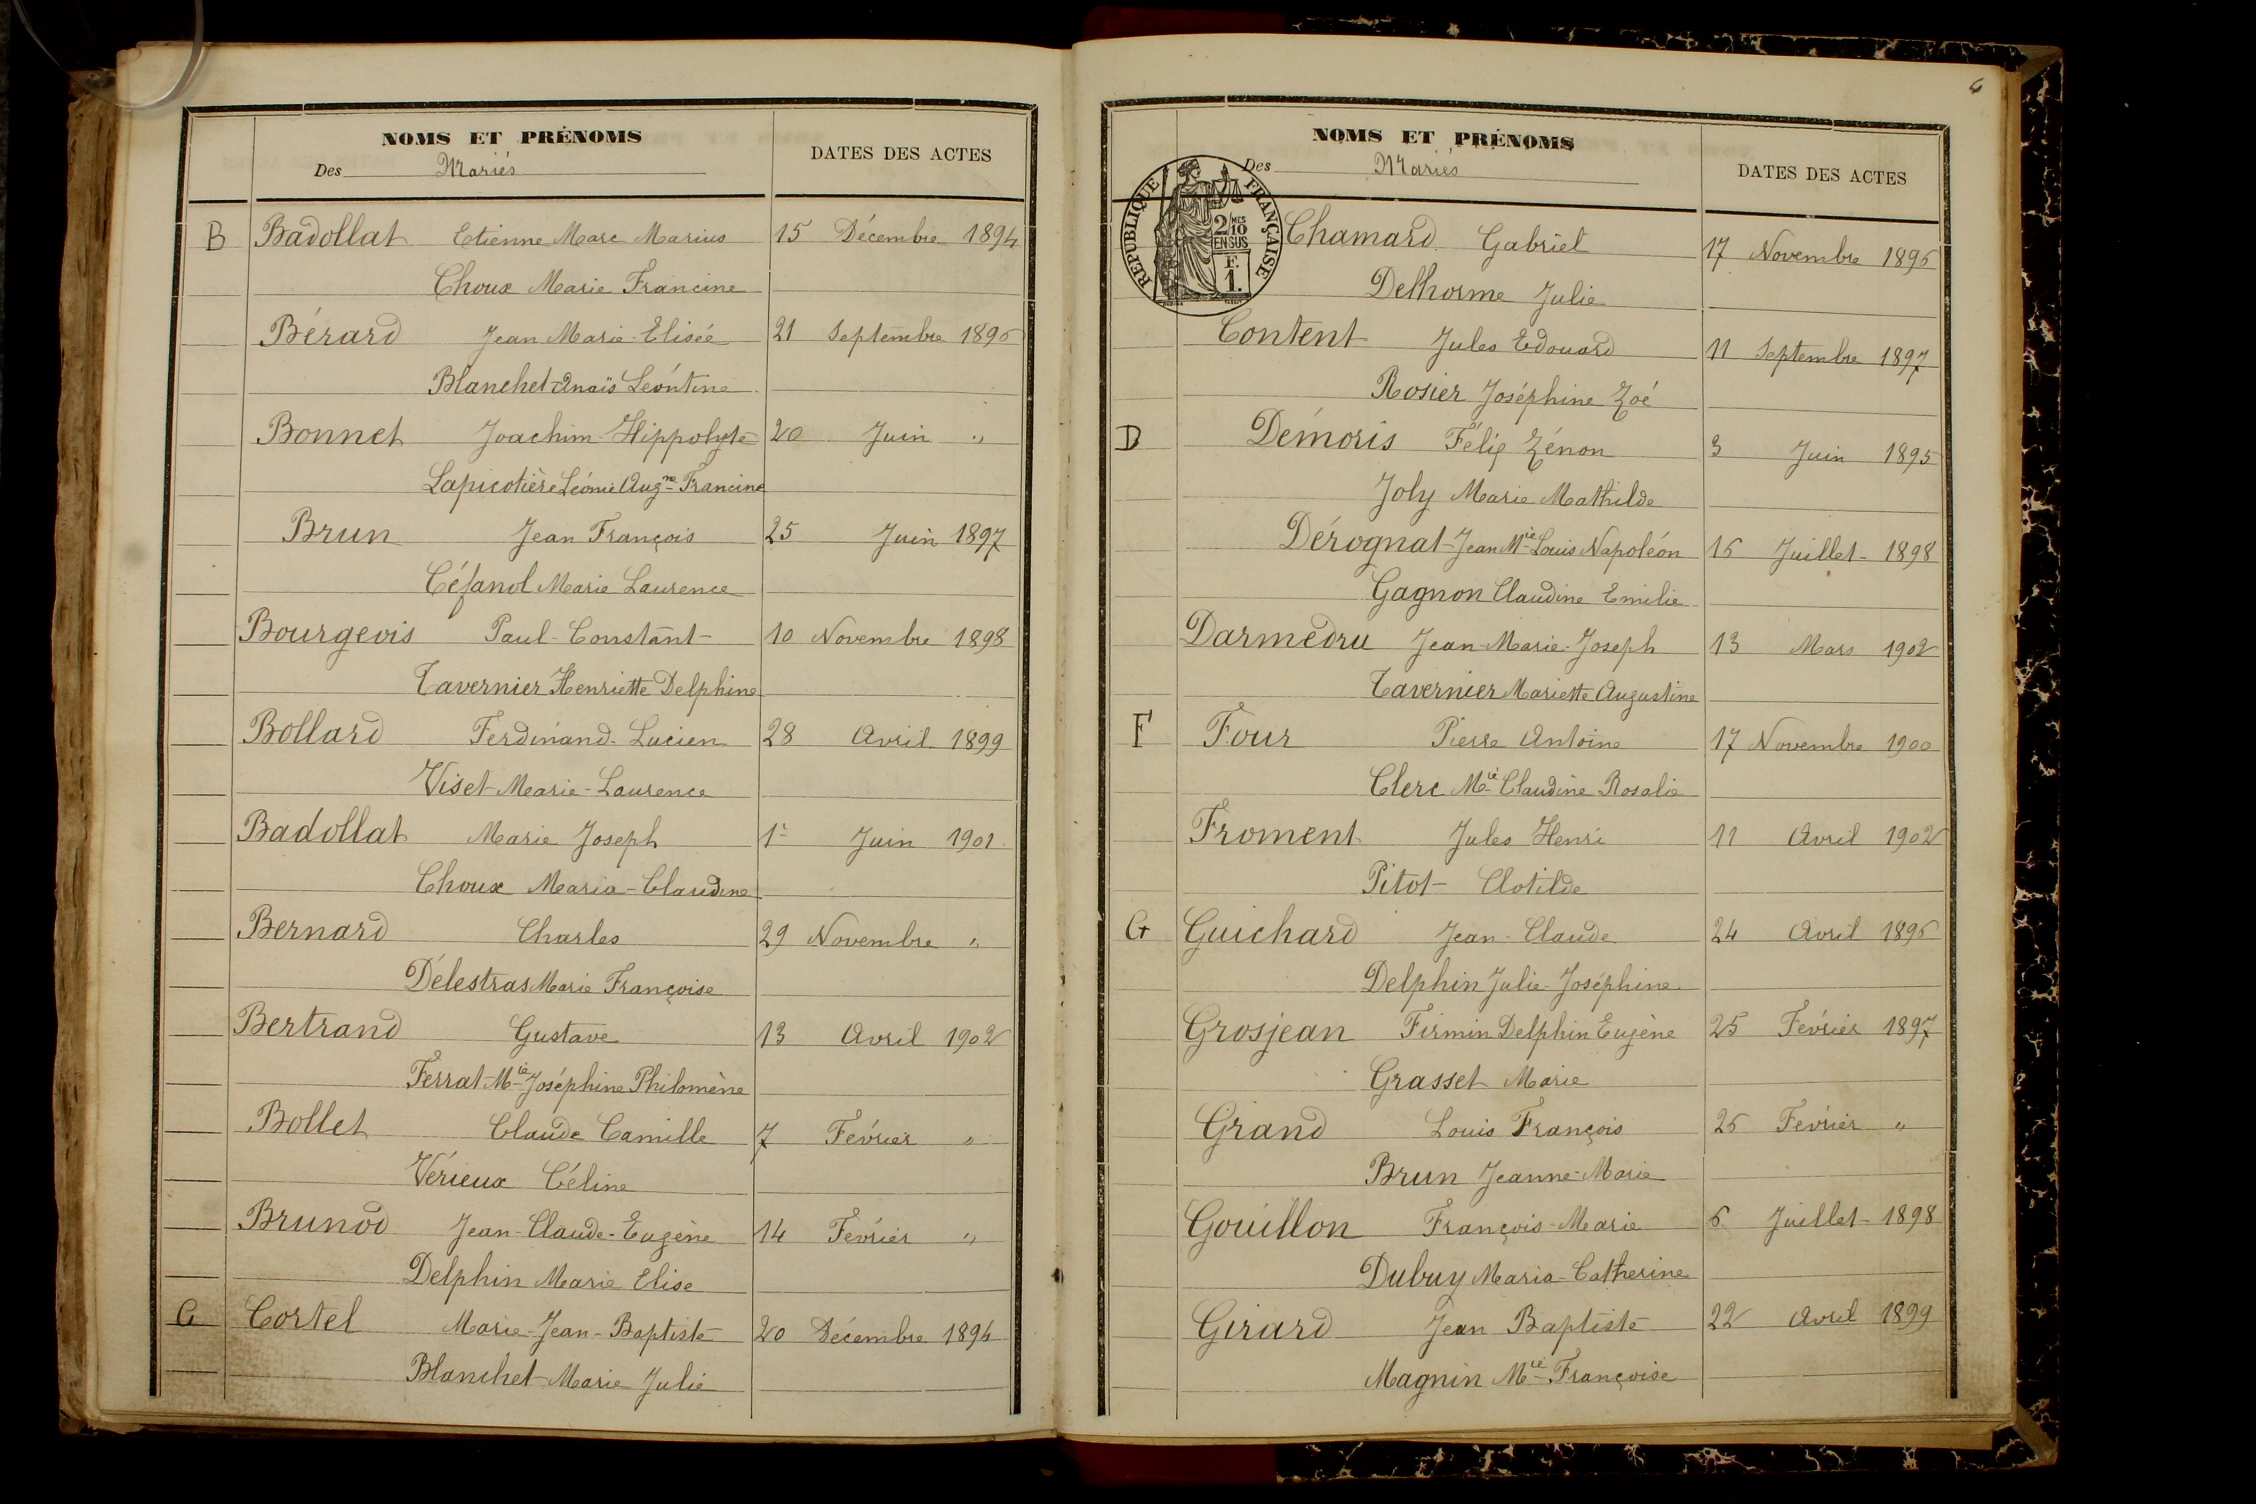 NOMS ET PRÉNOMS
Des Mariés
DATES DES ACTES
B Badollat Etienne Marc Marius 15 Décembre 1894
Choux Marie Francine
Bérard Jean Marie Elisée 21 Septembre 1896
Blanchet Anaïs Léontine
Bonnet Joachim Hippolyte 20 Juin "
Lapicotière Léonie Aug.ne Francine
Brun Jean François 25 Juin 1897
Céfanol Marie Laurence
Bourgeois Paul Constant 10 Novembre 1898
Tavernier Henriette Delphine
Bollard Ferdinand Lucien 28 Avril 1899
Viset Marie-Laurence
Badollat Marie Joseph 1r Juin 1901
Choux Maria-Claudine
Bernard Charles 29 Novembre "
Délestras Marie Françoise
Bertrand Gustave 13 Avril 1902
Ferrat Mie Joséphine Philomène
Bollet Claude Camille 7 Février "
Vérieux Céline
Brunod Jean-Claude-Eugène 14 Février "
Delphin Marie Elise
C Cortel Marie-Jean-Baptiste 20 Décembre 1894
Blanchet Marie Julie
6
NOMS ET PRÉNOMS
Des Mariés
DATES DES ACTES
RÉPUBLIQUE FRANÇAISE
2 MES
10
EN SUS
F.
1.
Chamard Gabriel 17 Novembre 1896
Delhorme Julie
Content Jules Edouard 11 Septembre 1897
Rosier Joséphine Zoé
D Démoris Félix Zénon 3 Juin 1895
Joly Marie Mathilde
Dérognat Jean Mie Louis Napoléon 16 Juillet 1898
Gagnon Claudine Emilie
Darmedru Jean-Marie-Joseph 13 Mars 1902
Tavernier Mariette Augustine
F Four Pierre Antoine 17 Novembre 1900
Clerc Mie Claudine Rosalie
Froment Jules Henri 11 Avril 1902
Pitot Clotilde
G Guichard Jean-Claude 24 Avril 1896
Delphin Julie-Joséphine
Grosjean Firmin Delphin Eugène 25 Février 1897
Grasset Marie
Grand Louis François 26 Février "
Brun Jeanne-Marie
Gouillon François-Marie 6 Juillet 1898
Dubuy Maria-Catherine
Girard Jean Baptiste 22 Avril 1899
Magnin Mie Françoise